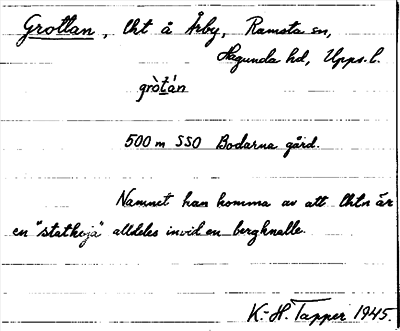 Grottan, lht å Årby, Ramsta sn,
Hagunda hd, Upps. l.
gròt́án
500 m SSO Bodarna gård.
Namnet kan komma av att lhtn är
en "statkoja" alldeles invid en bergknalle.
K.-H. Tapper 1945.